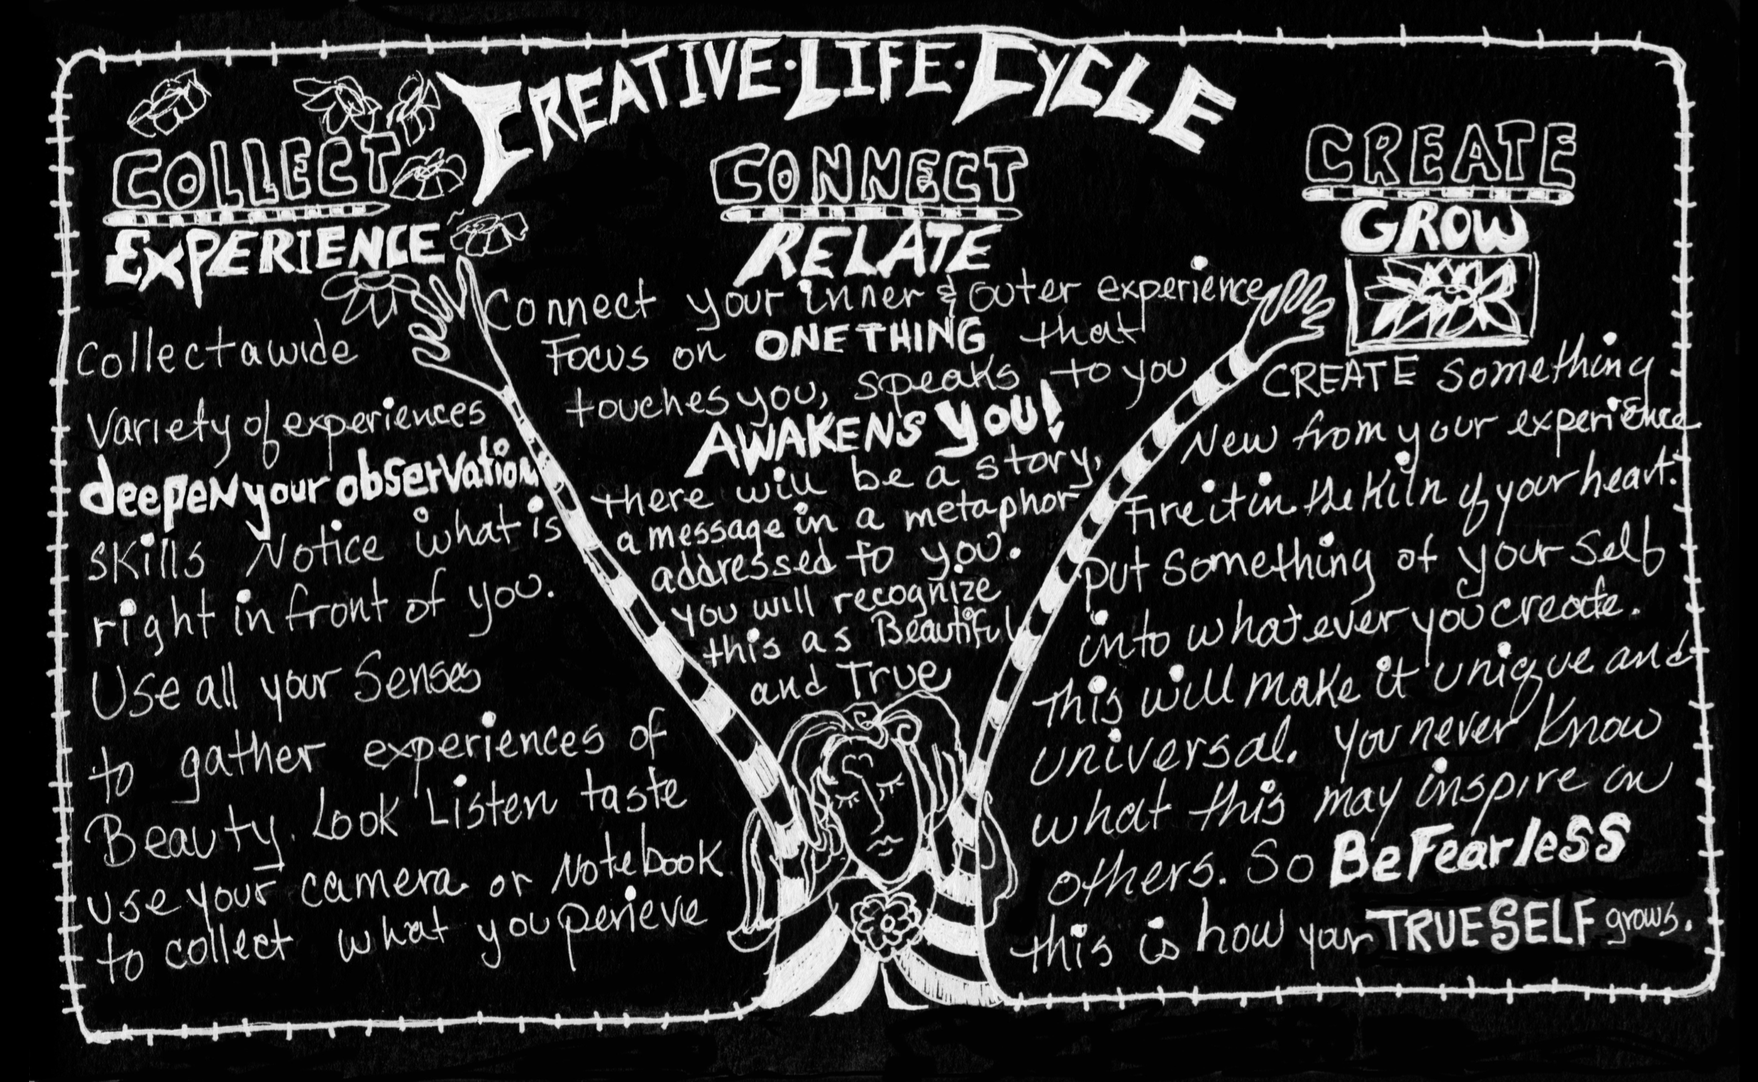 CREATIVE·LIFE·CYCLE
COLLECT
EXPERIENCE
Collect a wide
Variety of experiences
deepen your observation
skills Notice what is
right in front of you.
Use all your Senses
to gather experiences of
Beauty. Look Listen taste
use your camera or Notebook
to collect what you perieve
CONNECT
RELATE
Connect your inner & outer experience
Focus on ONE THING that
touches you, speaks to you
AWAKENS YOU!
there will be a story,
a message in a metaphor
addressed to you.
you will recognize
this as Beautiful
and True
CREATE
GROW
CREATE something
New from your experience
Fire it in the Kiln of your heart.
put something of your self
into what ever you create.
This will make it unique and
universal. You never know
what this may inspire in
others. So Be Fearless
this is how your TRUE SELF grows.